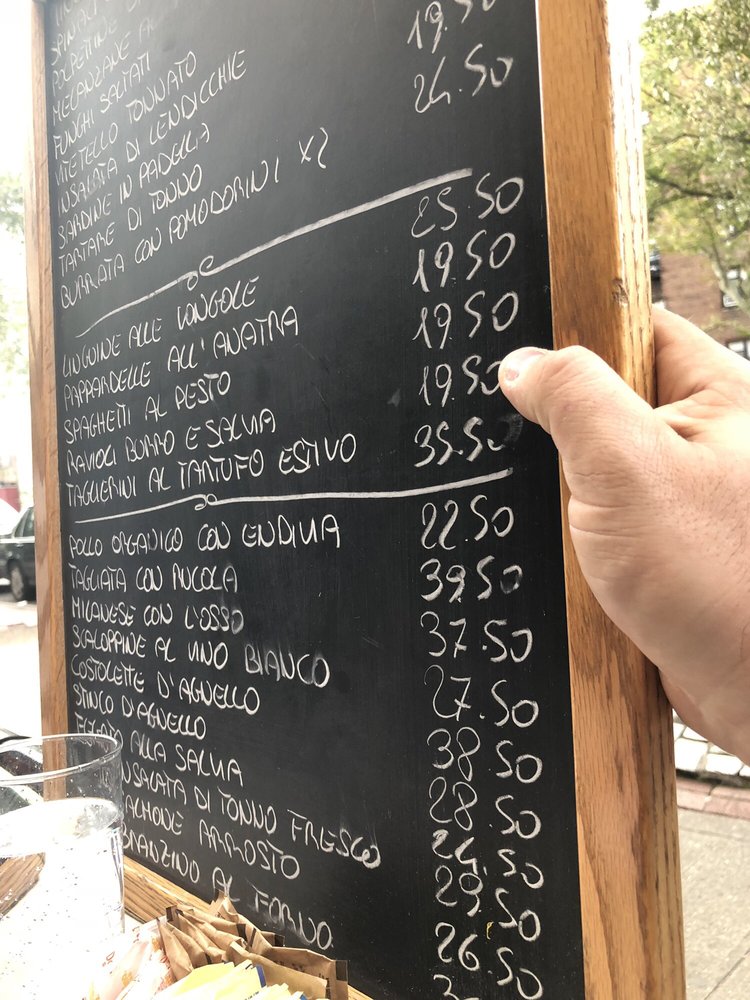 SPINACI
POLPETTINE
MELANZANE
FUNGHI SALTATI
VITELLO TONNATO
INSALATA DI LENDICCHIE
SARDINE IN PADELLA
TARTARE DI TONNO 19.50
BURRATA CON POMODORINI X2 24.50
LINGUINE ALLE VONGOLE 25.50
PAPPARDELLE ALL'ANATRA 19.50
SPAGHETTI AL PESTO 19.50
RAVIOLI BURRO E SALVIA 19.50
TAGLIERINI AL TARTUFO ESTIVO 35.50
POLLO ORGANICO CON ENDIVIA 22.50
TAGLIATA CON RUCOLA 39.50
MILANESE CON L'OSSO 37.50
SCALOPPINE AL VINO BIANCO 27.50
COSTOLETTE D'AGNELLO 38.50
STINCO D'AGNELLO 28.50
FEGATO ALLA SALVIA 24.50
INSALATA DI TONNO FRESCO 29.50
SALMONE ARROSTO 26.50
BRANZINO AL FORNO